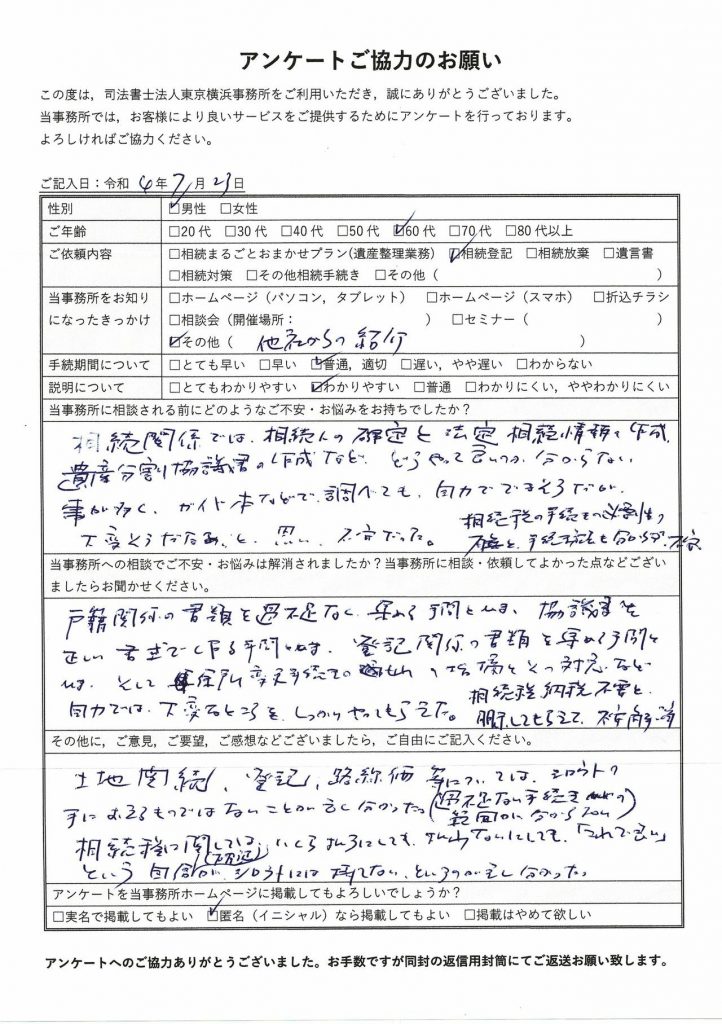 アンケートご協力のお願い
この度は，司法書士法人東京横浜事務所をご利用いただき，誠にありがとうございました。
当事務所では，お客様により良いサービスをご提供するためにアンケートを行っております。
よろしければご協力ください。
ご記入日：令和 4 年 7 月 23 日
性別 ☑男性 □女性
ご年齢 □20 代 □30 代 □40 代 □50 代 ☑60 代 □70 代 □80 代以上
ご依頼内容 □相続まるごとおまかせプラン(遺産整理業務) ☑相続登記 □相続放棄 □遺言書
□相続対策 □その他相続手続き □その他（ ）
当事務所をお知り □ホームページ（パソコン，タブレット） □ホームページ（スマホ） □折込チラシ
になったきっかけ □相談会（開催場所： ） □セミナー（ ）
☑その他（ 他社からの紹介 ）
手続期間について □とても早い □早い ☑普通，適切 □遅い，やや遅い □わからない
説明について □とてもわかりやすい ☑わかりやすい □普通 □わかりにくい，ややわかりにくい
当事務所に相談される前にどのようなご不安・お悩みをお持ちでしたか？
相続関係では、相続人の確定と法定相続情報の作成、
遺産分割協議書の作成など、どうやって良いのか分からない
事が多く、ガイド本などで調べても、自力でできそうだが、
大変そうだなあ、と思い、不安だった。
相続税の手続きの必要性の
有無と、手続方法も分からず、不安
当事務所への相談でご不安・お悩みは解消されましたか？当事務所に相談・依頼してよかった点などござい
ましたらお聞かせください。
戸籍関係の書類を過不足なく集める手間とひま、協議書を
正しい書式で作る手間とひま、登記関係の書類を集める手間と
ひま、そして住所変更手続きの の指摘とその対応など
自力では、大変なところを、しっかりやってもらえた。
相続税納税不要と、
してもらえて、不安解消
その他に，ご意見，ご要望，ご感想などございましたら，ご自由にご記入ください。
土地関続、登記、路線価等については、シロウトの
手におえるものではないことが良く分かった（過不足ない手続きの
範囲が分からない）
相続税に関しては、いくら払うにしても、払わないにしても、「これで良い」
という自信が、シロウトには持てない、というのが良く分かった。
アンケートを当事務所ホームページに掲載してもよろしいでしょうか？
□実名で掲載してもよい ☑匿名（イニシャル）なら掲載してもよい □掲載はやめて欲しい
アンケートへのご協力ありがとうございました。お手数ですが同封の返信用封筒にてご返送お願い致します。